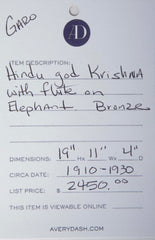 GARO
AD
ITEM DESCRIPTION:
Hindu god Krishna
with flute on
Elephant Bronze
DIMENSIONS: 19" H x 11" W x 4" D
CIRCA DATE: 1910-1930
LIST PRICE: $ 2450.00
THIS ITEM IS VIEWABLE ONLINE
AVERYDASH.COM